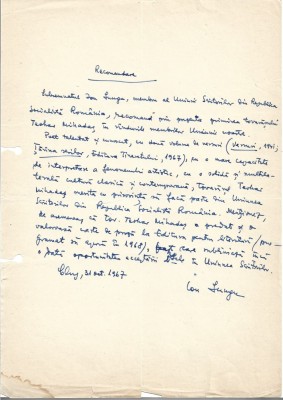 Recomandare
Subsemnatul Ion Lungu, membru al Uniunii Scriitorilor din Republica
Socialistă România, recomand prin prezenta primirea tovarășului
Teohar Mihadaș în rîndurile membrilor Uniunii noastre.
Poet talentat și cunoscut, cu două volume de versuri (
Țărîna serilor, Editura Tineretului, 1967), cu o mare capacitate
de interpretare a fenomenului artistic, cu o solidă și multila-
terală cultură clasică și contemporană, tovarășul Teohar
Mihadaș merită cu prisosință să facă parte din Uniunea
Scriitorilor din Republica Socialistă România. Menționez,
de asemenea, că tov. Teohar Mihadaș a predat și o
valoroasă carte de proză la Editura pentru literatură (pro-
gramată să apară în 1968), care subliniază încă
o dată oportunitatea acceptării în Uniunea Scriitorilor.
Cluj, 31 oct. 1967
Ion Lungu